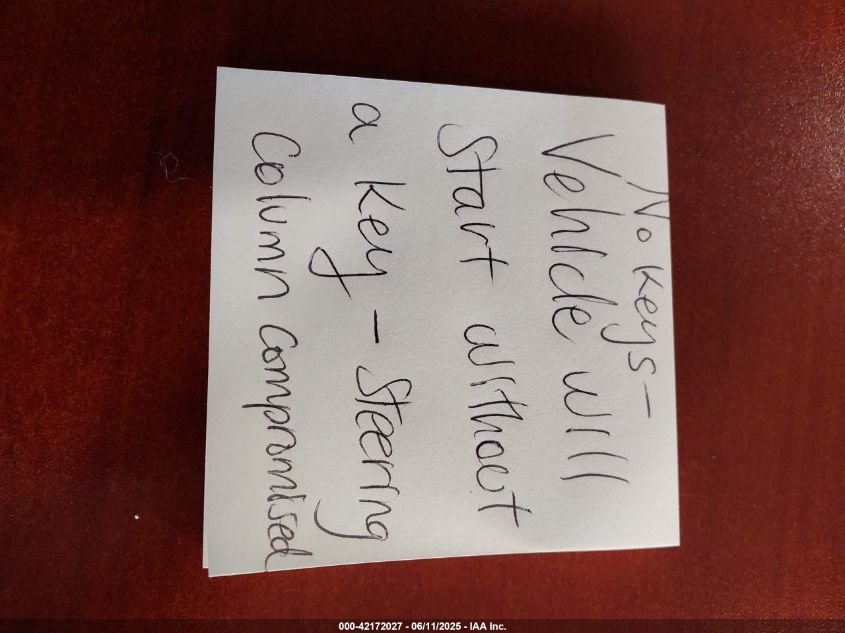 No keys-
Vehicle will
Start without
a key - Steering
Column compromised
000-42172027 - 06/11/2025 - IAA Inc.